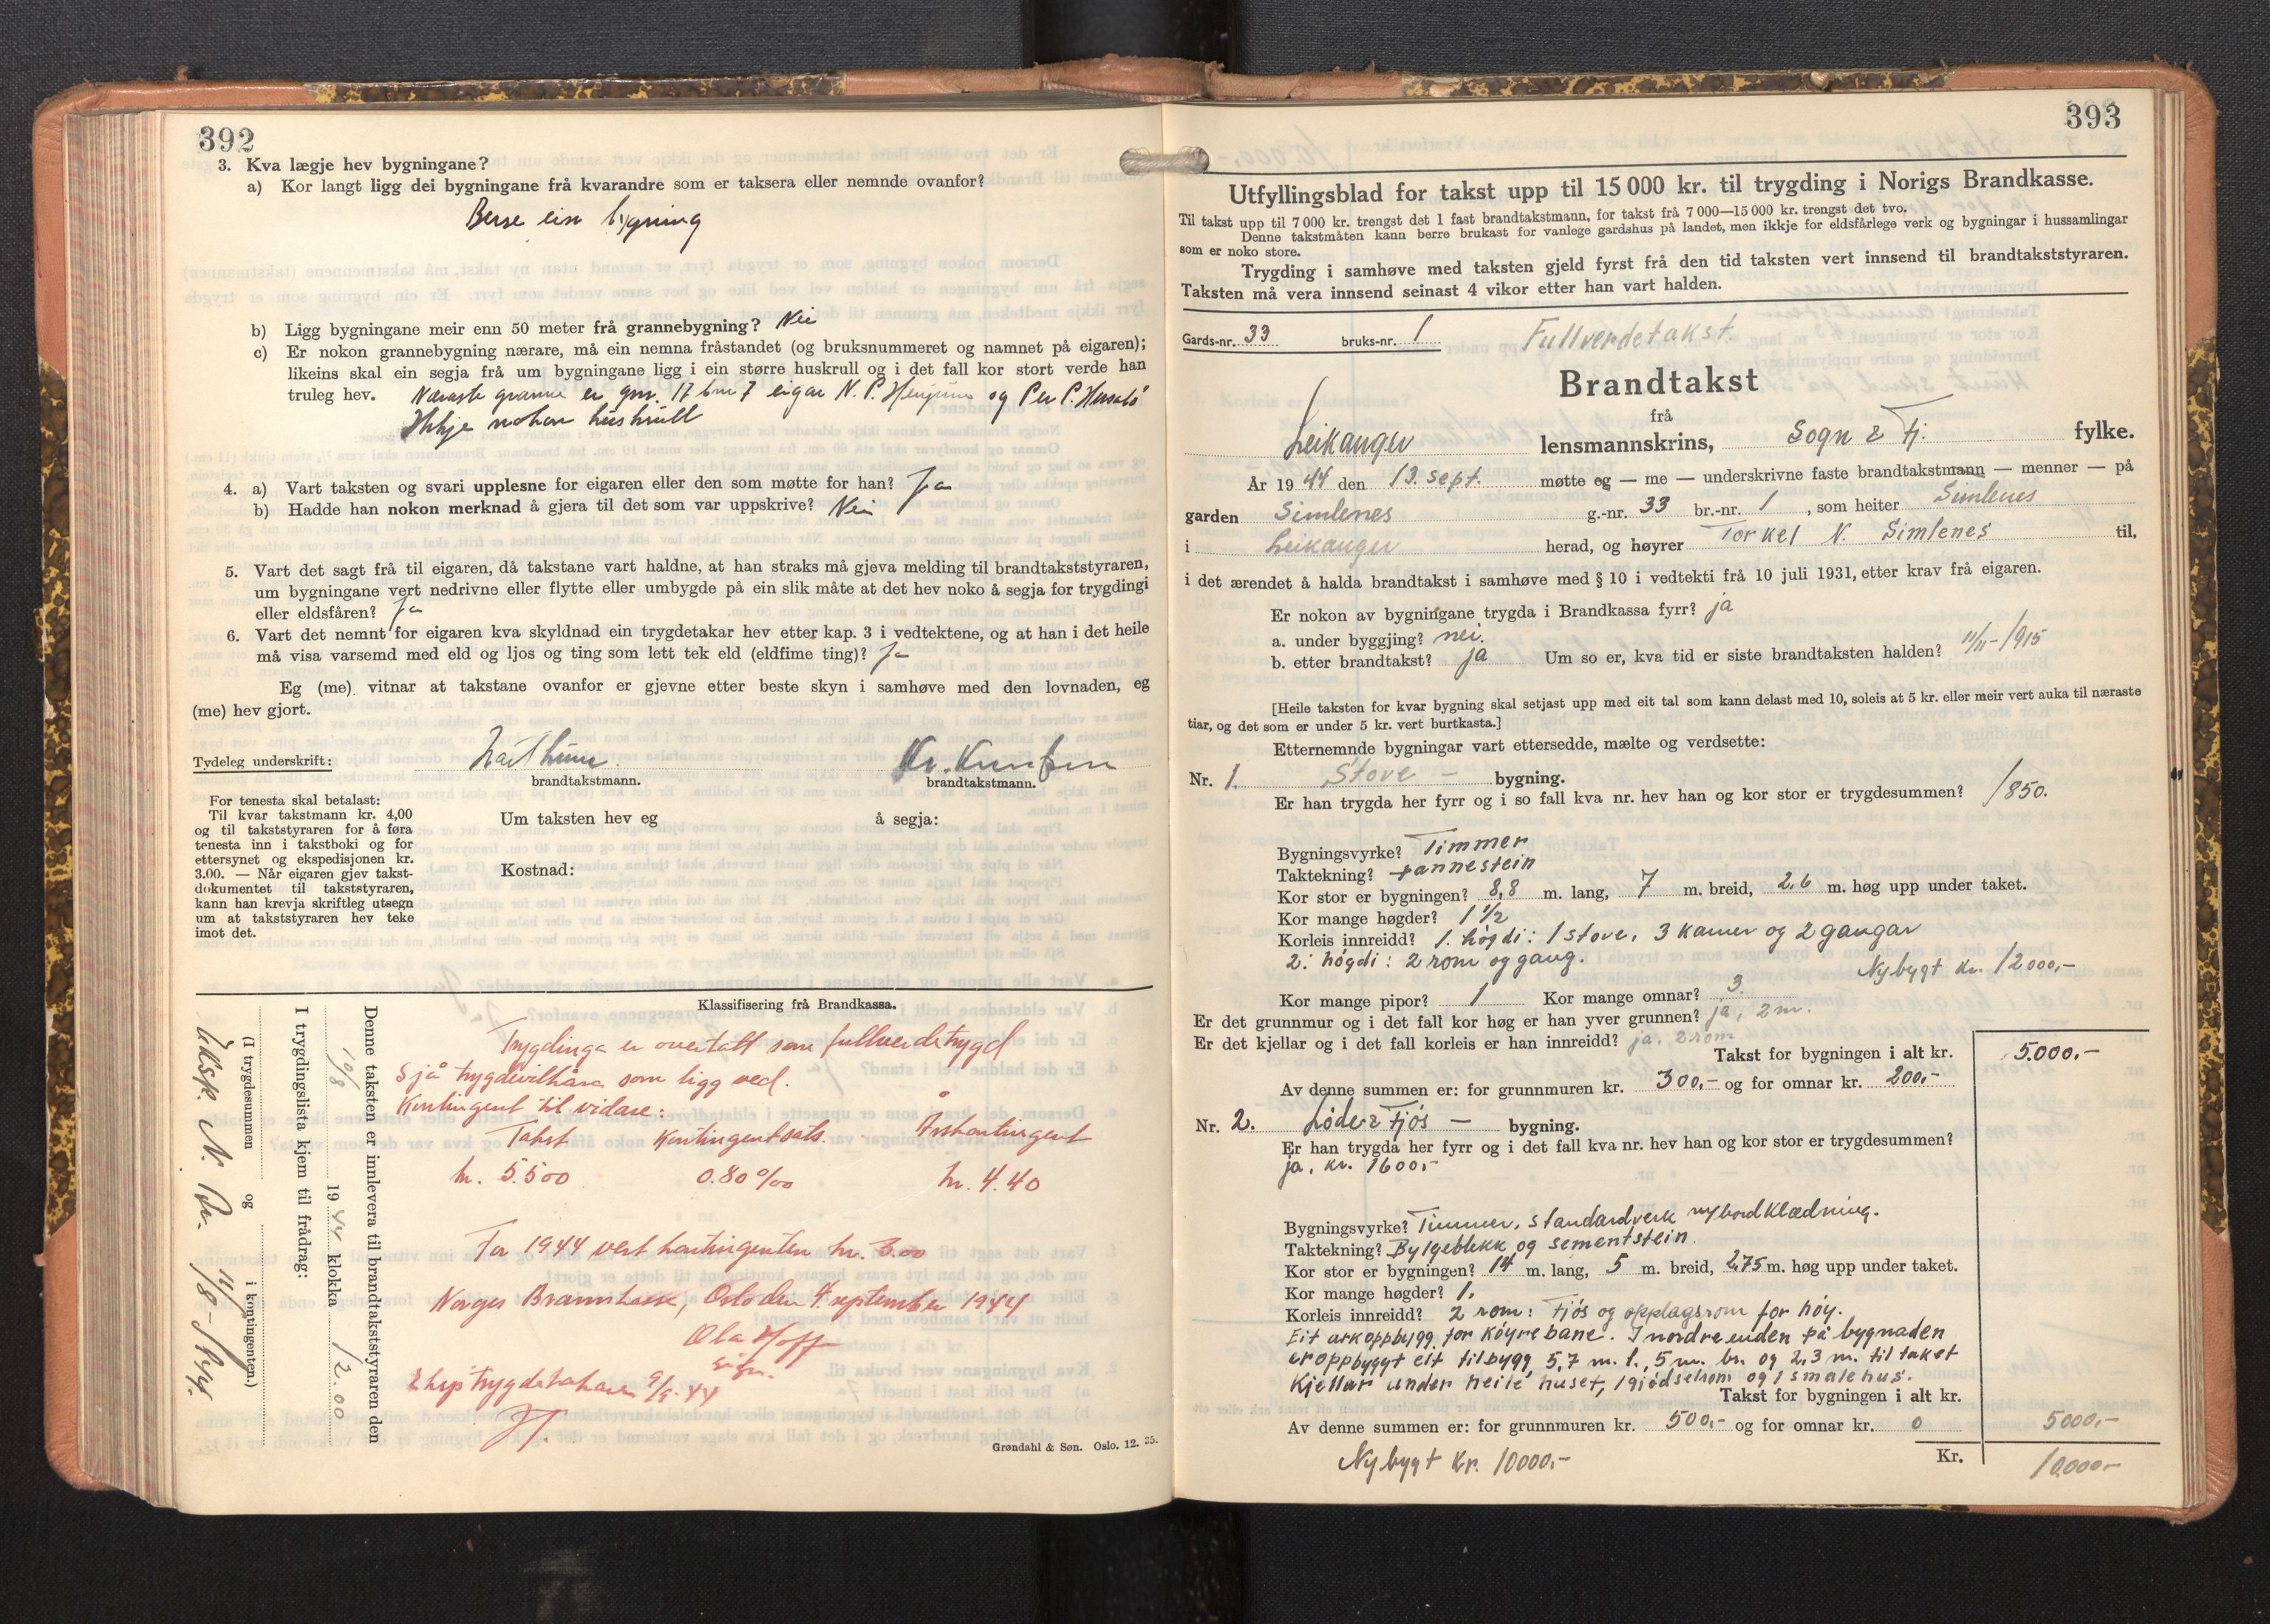 392
3. Kva lægje hev bygningane?
a) Kor langt ligg dei bygningane frå kvarandre som er taksera eller nemnde ovanfor?
Berre ein bygning
b) Ligg bygningane meir enn 50 meter frå grannebygning? Nei
c) Er nokon grannebygning nærare, må ein nemna fråstandet (og bruksnummeret og namnet på eigaren);
likeins skal ein segja frå um bygningane ligg i ein større huskrull og i det fall kor stort verde han
truleg hev. Næraste granne er gnr. 17 bnr 7 eigar N. P. Henjum og Per P. Husabø
Ikkje nokon huskrull
4. a) Vart taksten og svari upplesne for eigaren eller den som møtte for han? Ja
b) Hadde han nokon merknad å gjera til det som var uppskrive? Nei
5. Vart det sagt frå til eigaren, då takstane vart haldne, at han straks må gjeva melding til brandtakststyraren,
um bygningane vert nedrivne eller flytte eller umbygde på ein slik måte at det hev noko å segja for trygdingi
eller eldsfåren? Ja
6. Vart det nemnt for eigaren kva skyldnad ein trygdetakar hev etter kap. 3 i vedtektene, og at han i det heile
må visa varsemd med eld og ljos og ting som lett tek eld (eldfime ting)? Ja
Eg (me) vitnar at takstane ovanfor er gjevne etter beste skyn i samhøve med den lovnaden, eg
(me) hev gjort.
Tydeleg underskrift: Kr. Knutsen
brandtakstmann. brandtakstmann.
For tenesta skal betalast:
Til kvar takstmann kr. 4,00
og til takststyraren for å føra
tenesta inn i takstboki og for
ettersynet og ekspedisjonen kr.
3.00. — Når eigaren gjev takst-
dokumentet til takststyraren,
kann han krevja skriftleg utsegn
um at takststyraren hev teke
imot det.
Um taksten hev eg å segja:
Kostnad:
Klassifisering frå Brandkassa.
Trygdinga er overtatt som fullverdetrygd
Sjå trygdevilkåra som ligg ved.
Kontingent til vidare:
Takst Kontingentsats. Årskontingent
kr. 5.500 0.80 ‰ kr. 4.40
For 1944 vert kontingenten kr. 3.00
Norges Brannkasse, Oslo den 4. september 1944
Ola Hoff
sign.
2 eksp trygdetakaren 9/9-44
Grøndahl & Søn. Oslo. 12. 35.
Denne taksten er innlevera til brandtakststyraren den
10/8 1944 klokka 12.00
I trygdingslista kjem til frådrag:
(I trygdesummen og i kontingenten.)
Eksp. N. Br. 11/8-
393
Utfyllingsblad for takst upp til 15 000 kr. til trygding i Norigs Brandkasse.
Til takst upp til 7 000 kr. trengst det 1 fast brandtakstmann, for takst frå 7 000—15 000 kr. trengst det tvo.
Denne takstmåten kann berre brukast for vanlege gardshus på landet, men ikkje for eldsfårlege verk og bygningar i hussamlingar
som er noko store.
Trygding i samhøve med taksten gjeld fyrst frå den tid taksten vert innsend til brandtakststyraren.
Taksten må vera innsend seinast 4 vikor etter han vart halden.
Gards-nr. 33 bruks-nr. 1 Fullverdetakst.
Brandtakst
frå
Leikanger lensmannskrins, Sogn & Fj. fylke.
År 1944 den 13. sept. møtte eg — me — underskrivne faste brandtakstmann — menner — på
garden Simlenes g.-nr. 33 br.-nr. 1, som heiter Simlenes
i Leikanger herad, og høyrer Torkel N. Simlenes til,
i det ærendet å halda brandtakst i samhøve med § 10 i vedtekti frå 10 juli 1931, etter krav frå eigaren.
Er nokon av bygningane trygda i Brandkassa fyrr? ja
a. under byggjing? nei.
b. etter brandtakst? ja Um so er, kva tid er siste brandtaksten halden? 11/11-1915
[Heile taksten for kvar bygning skal setjast upp med eit tal som kann delast med 10, soleis at 5 kr. eller meir vert auka til næraste
tiar, og det som er under 5 kr. vert burtkasta.]
Etternemnde bygningar vart ettersedde, mælte og verdsette:
Nr. 1. Stove - bygning.
Er han trygda her fyrr og i so fall kva nr. hev han og kor stor er trygdesummen? 1850.
Bygningsvyrke? Timmer
Taktekning? pannestein
Kor stor er bygningen? 8,8 m. lang, 7 m. breid, 2,6 m. høg upp under taket.
Kor mange høgder? 1 1/2
Korleis innreidd? 1. høgdi: 1 stove, 3 kamer og 2 gangar
2. høgdi: 2 rom og gang. Nybygt kr. 12000,-
Kor mange pipor? 1 Kor mange omnar? 3.
Er det grunnmur og i det fall kor høg er han yver grunnen? ja, 2 m.
Er det kjellar og i det fall korleis er han innreidd? ja, 2 rom
Takst for bygningen i alt kr. 5.000.-
Av denne summen er: for grunnmuren kr. 300,- og for omnar kr. 200,-
Nr. 2. Løde & Fjós - bygning.
Er han trygda her fyrr og i det fall kva nr. hev han og kor stor er trygdesummen?
ja, kr. 1600,-
Bygningsvyrke? Timmer, standardverk m/bordklædning.
Taktekning? Bylgeblekk og sementstein
Kor stor er bygningen? 14 m. lang, 5 m. breid, 2,75 m. høg upp under taket.
Kor mange høgder? 1.
Korleis innreidd? 2 rom: Fjós og opplagsrom for høy.
Eit arkoppbygg for køyrebane. I nordre enden på bygnaden
er oppbyggt eit tilbygg 5,7 m. l., 5 m. br. og 2,3 m. til taket
Kjellar under heile huset, 1 gjødselrom og 1 smalehus.
Takst for bygningen i alt kr.
Av denne summen er: for grunnmuren kr. 500,- og for omnar kr. 0 5000,-
Nybygt kr. 10000,- Kr. 10000,-